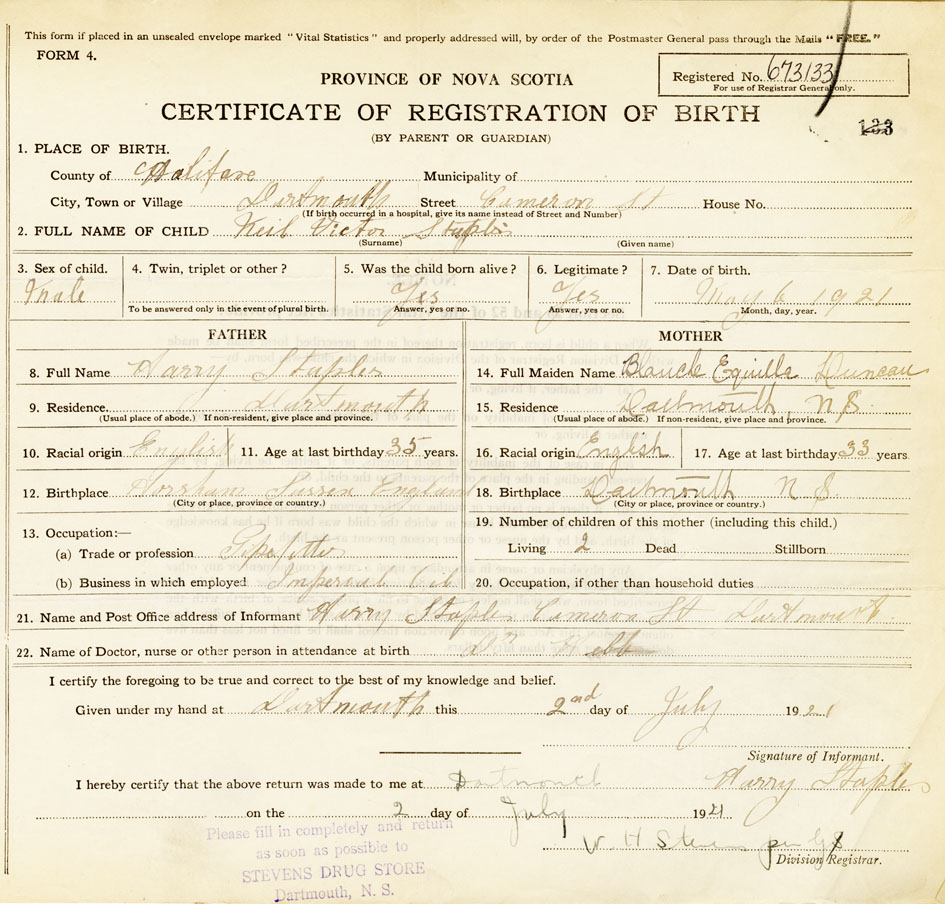 This form if placed in an unsealed envelope marked "Vital Statistics" and properly addressed will, by order of the Postmaster General pass through the Mails "FREE."
FORM 4.
PROVINCE OF NOVA SCOTIA
Registered No. 673133
For use of Registrar General only.
CERTIFICATE OF REGISTRATION OF BIRTH
133
(BY PARENT OR GUARDIAN)
1. PLACE OF BIRTH.
County of Halifax Municipality of
City, Town or Village Dartmouth Street Cameron St House No.
(If birth occurred in a hospital, give its name instead of Street and Number)
2. FULL NAME OF CHILD Keil Victor Staples
(Surname) (Given name)
3. Sex of child. 4. Twin, triplet or other? 5. Was the child born alive? 6. Legitimate? 7. Date of birth.
Male Yes Yes May 6 1921
To be answered only in the event of plural birth. Answer, yes or no. Answer, yes or no. Month, day, year.
FATHER MOTHER
8. Full Name Harry Staples 14. Full Maiden Name Blanche Equilla Duncan
9. Residence. Dartmouth 15. Residence Dartmouth, N S.
(Usual place of abode.) If non-resident, give place and province. (Usual place of abode.) If non-resident, give place and province.
10. Racial origin English 11. Age at last birthday 35 years. 16. Racial origin English 17. Age at last birthday 33 years
12. Birthplace Horsham Sussex England 18. Birthplace Dartmouth N S.
(City or place, province or country.) (City or place, province or country.)
13. Occupation:— 19. Number of children of this mother (including this child.)
(a) Trade or profession Pipefitter Living 2 Dead Stillborn
(b) Business in which employed Imperial Oil 20. Occupation, if other than household duties
21. Name and Post Office address of Informant Harry Staples Cameron St Dartmouth.
22. Name of Doctor, nurse or other person in attendance at birth Dr
I certify the foregoing to be true and correct to the best of my knowledge and belief.
Given under my hand at Dartmouth this 2nd day of July 1921
Signature of Informant.
I hereby certify that the above return was made to me at Dartmouth Harry Staples
on the 2 day of July 1921
Please fill in completely and return
as soon as possible to
STEVENS DRUG STORE
Dartmouth, N. S.
W. H Stevens per
Division Registrar.